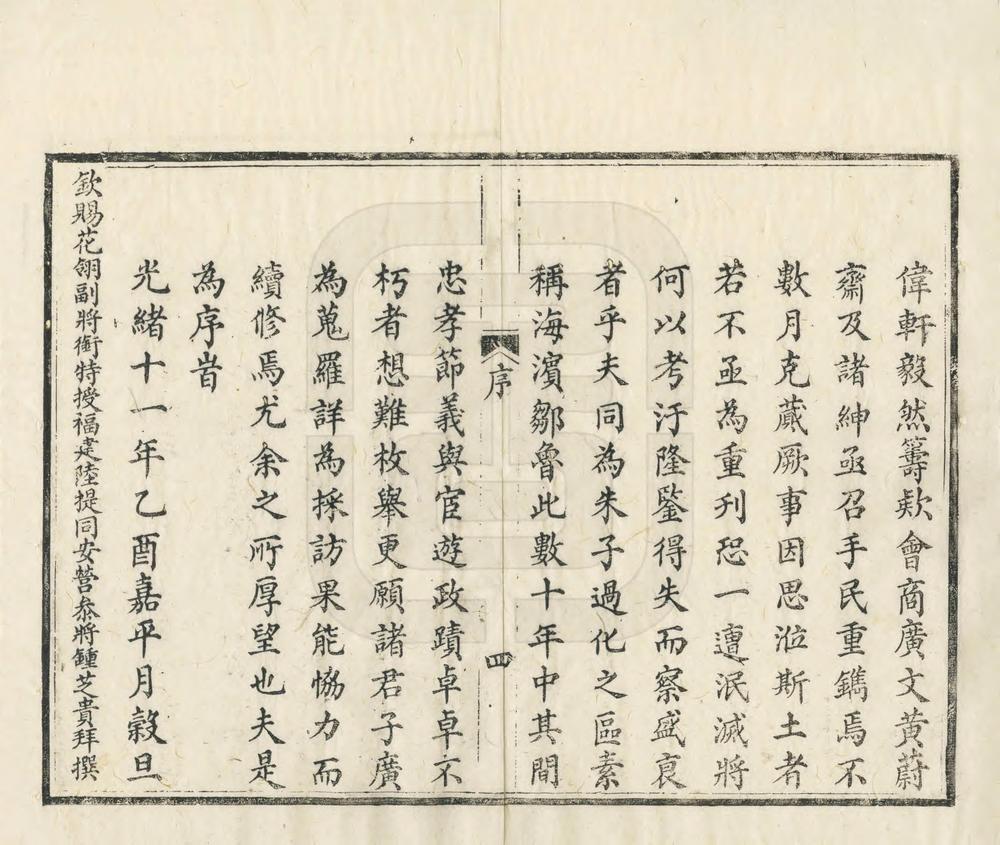 偉軒毅然籌欵會商廣文黃蔚
齋及諸紳亟召手民重鐫焉不
數月克蕆厥事因思涖斯土者
若不亟為重刋恐一遭泯滅將
何以考汙隆鑒得失而察盛衰
者乎夫同為朱子過化之區素
稱海濱鄒魯此數十年中其間
序
四
忠孝節義與宦遊政蹟卓卓不
朽者想難枚舉更願諸君子廣
為蒐羅詳為採訪果能恊力而
續修焉尤余之所厚望也夫是
為序旹
光緒十一年乙酉嘉平月穀旦
欽賜花翎副將銜特授福建陸提同安營叅將鍾芝貴拜撰